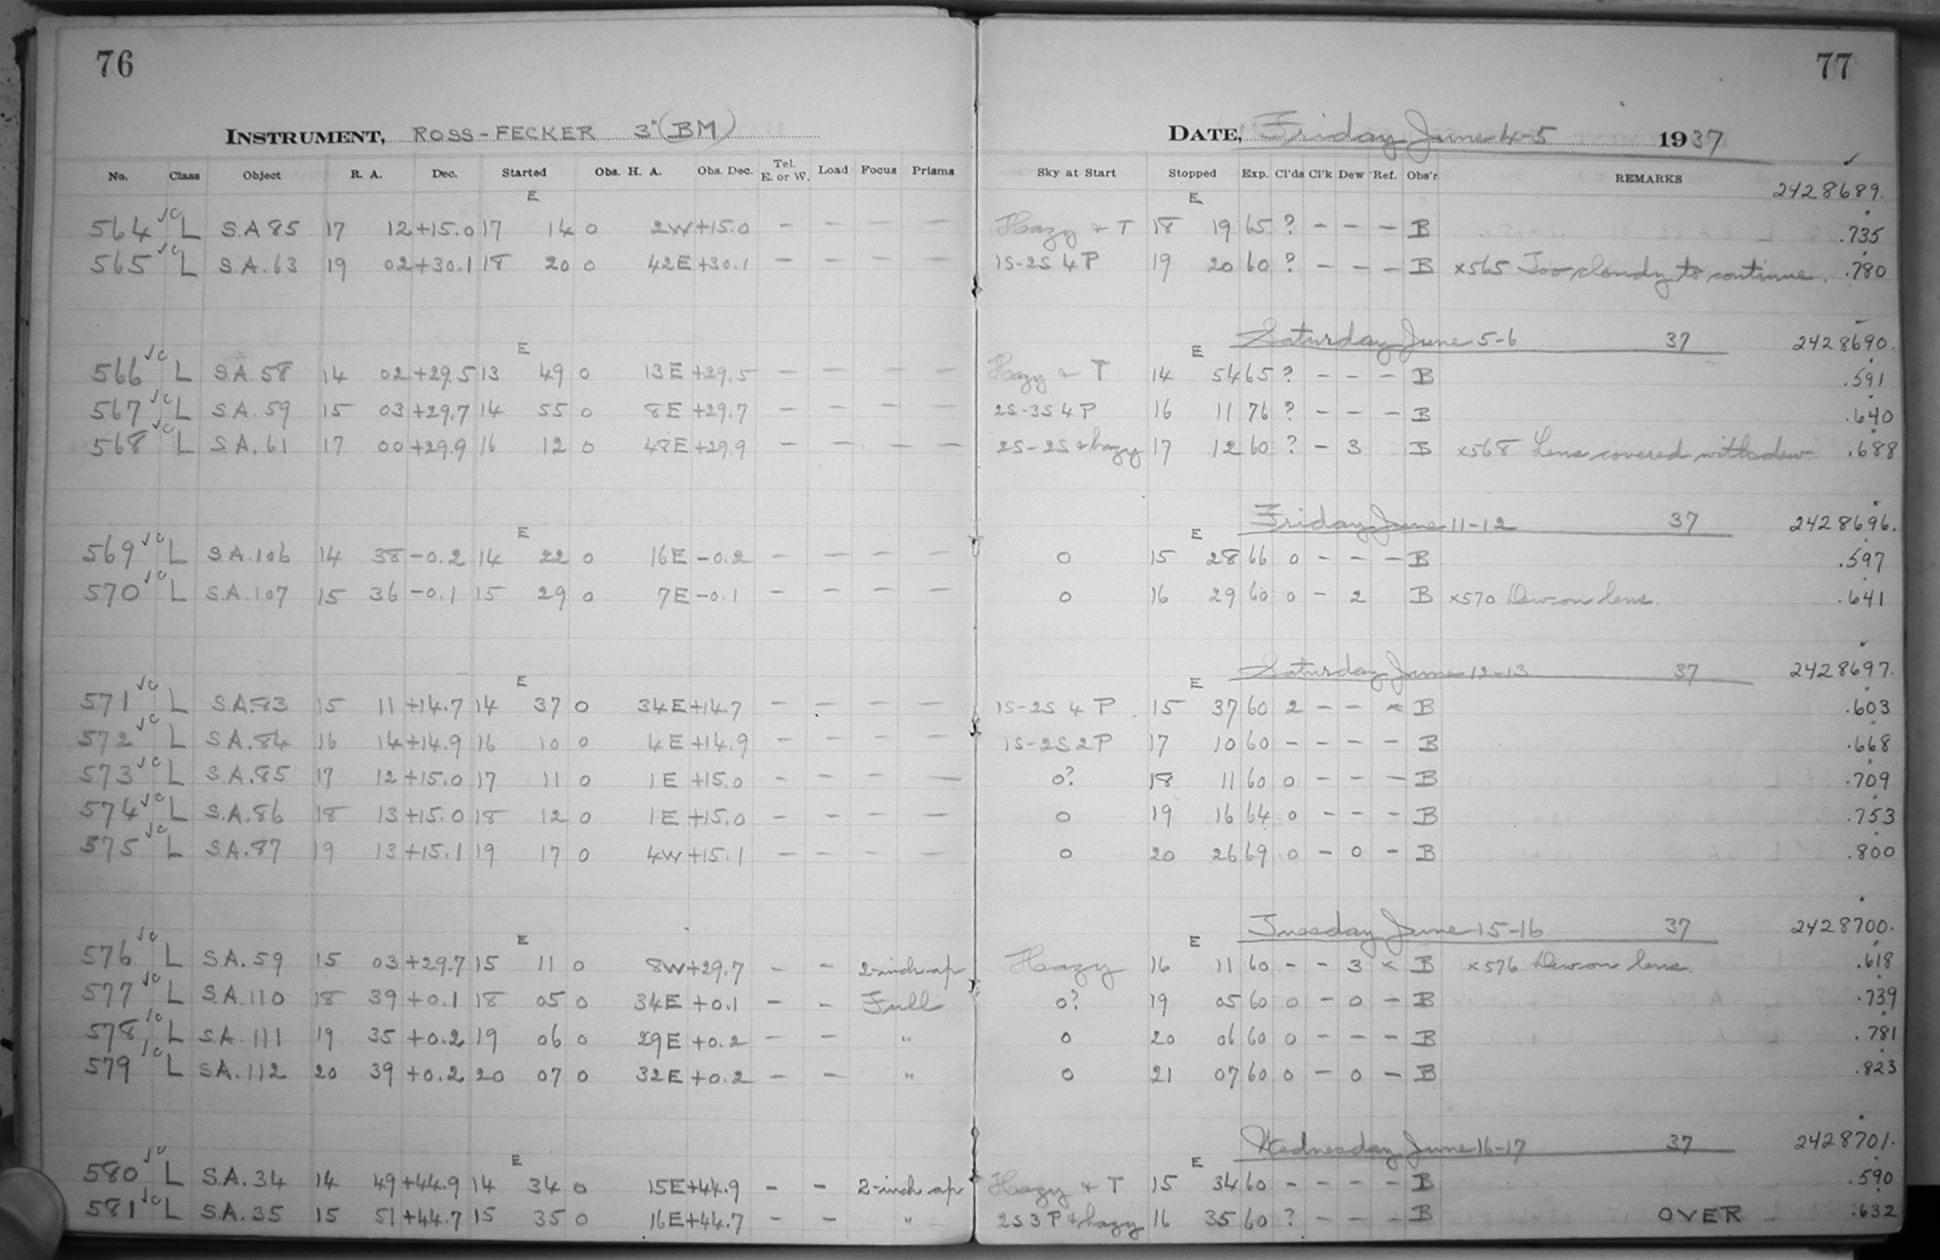 76 77
INSTRUMENT, ROSS-FECKER 3"(BM) DATE, Friday June 4-5 1937
No. Class Object R. A. Dec. Started Obs. H. A. Obs. Dec. Tel. E. or W. Load Focus Prisms Sky at Start Stopped Exp. Cl'ds Cl'k Dew Ref. Obs'r REMARKS 2428689.
E E
564 L S.A 85 17 12 +15.0 17 14 0 2W +15.0 - - - - Hazy & T 18 19 65 ? - - - B .735
565 L S.A. 63 19 02 +30.1 18 20 0 42E +30.1 - - - - 1S-2S 4P 19 20 60 ? - - - B x565 Too cloudy to continue. .780
E E Saturday June 5-6 37 2428690.
566 L S.A. 58 14 02 +29.5 13 49 0 13E +29.5 - - - - Hazy & T 14 54 65 ? - - - B .591
567 L S.A. 59 15 03 +29.7 14 55 0 8E +29.7 - - - - 2S-3S 4P 16 11 76 ? - - - B .640
568 L S.A. 61 17 00 +29.9 16 12 0 48E +29.9 - - - - 2S-2S & hazy 17 12 60 ? - 3 B x568 Lens covered with dew. .688
E E Friday June 11-12 37 2428696.
569 L S.A. 106 14 38 -0.2 14 22 0 16E -0.2 - - - - 0 15 28 66 0 - - - B .597
570 L S.A. 107 15 36 -0.1 15 29 0 7E -0.1 - - - - 0 16 29 60 0 - 2 B x570 Dew on lens. .641
E E Saturday June 12-13 37 2428697.
571 L S.A. 83 15 11 +14.7 14 37 0 34E +14.7 - - - - 1S-2S 4P 15 37 60 2 - - - B .603
572 L S.A. 84 16 14 +14.9 16 10 0 4E +14.9 - - - - 1S-2S 2P 17 10 60 - - - - B .668
573 L S.A. 85 17 12 +15.0 17 11 0 1E +15.0 - - - - 0? 18 11 60 0 - - - B .709
574 L S.A. 86 18 13 +15.0 18 12 0 1E +15.0 - - - - 0 19 16 64 0 - - - B .753
575 L S.A. 87 19 13 +15.1 19 17 0 4W +15.1 - - - - 0 20 26 69 0 - 0 - B .800
E E Tuesday June 15-16 37 2428700.
576 L S.A. 59 15 03 +29.7 15 11 0 8W +29.7 - - 2-inch ap Hazy 16 11 60 - - 3 x B x576 Dew on lens. .618
577 L S.A. 110 18 39 +0.1 18 05 0 34E +0.1 - - Full 0? 19 05 60 0 - 0 - B .739
578 L S.A. 111 19 35 +0.2 19 06 0 29E +0.2 - - " 0 20 06 60 0 - - - B .781
579 L S.A. 112 20 39 +0.2 20 07 0 32E +0.2 - - " 0 21 07 60 0 - 0 - B .823
E E Wednesday June 16-17 37 2428701.
580 L S.A. 34 14 49 +44.9 14 34 0 15E +44.9 - - 2-inch ap Hazy & T 15 34 60 - - - - B .590
581 L S.A. 35 15 51 +44.7 15 35 0 16E +44.7 - - " 2S 3P & hazy 16 35 60 ? - - - B OVER .632